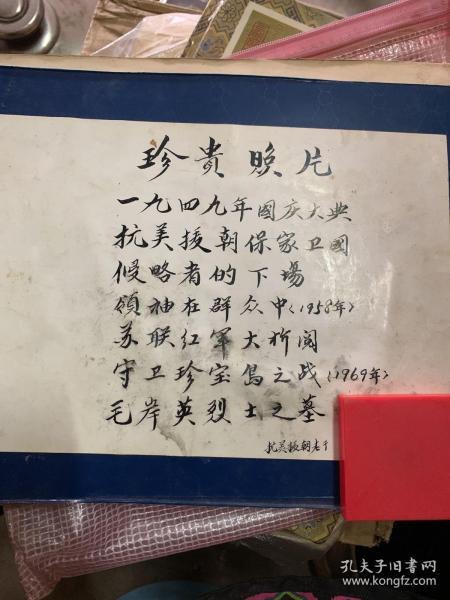 珍貴照片
一九四九年國庆大典
抗美援朝保家卫國
侵略者的下場
領袖在群众中（1958年）
苏联红軍大祈阅
守卫珍宝島之战（1969年）
毛岸英烈士之墓
抗美援朝老干
孔夫子旧书网
www.kongfz.com